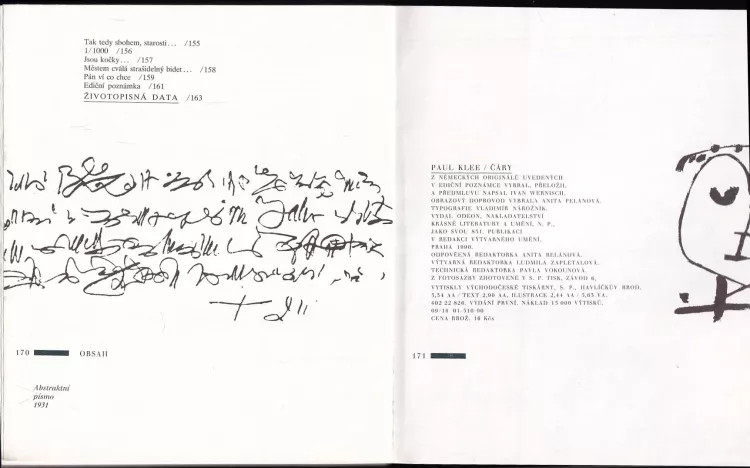 Tak tedy sbohem, starosti... /155
1/1000 /156
Jsou kočky... /157
Městem cválá strašidelný bidet... /158
Pán ví co chce /159
Ediční poznámka /161
ŽIVOTOPISNÁ DATA /163
170 OBSAH
Abstraktní
písmo
1931
PAUL KLEE / ČÁRY
Z NĚMECKÝCH ORIGINÁLŮ UVEDENÝCH
V EDIČNÍ POZNÁMCE VYBRAL, PŘELOŽIL
A PŘEDMLUVU NAPSAL IVAN WERNISCH.
OBRAZOVÝ DOPROVOD VYBRALA ANITA PELÁNOVÁ.
TYPOGRAFIE VLADIMÍR NÁROŽNÍK.
VYDAL ODEON, NAKLADATELSTVÍ
KRÁSNÉ LITERATURY A UMĚNÍ, N. P.,
JAKO SVOU 851. PUBLIKACI
V REDAKCI VÝTVARNÉHO UMĚNÍ.
PRAHA 1990.
ODPOVĚDNÁ REDAKTORKA ANITA PELÁNOVÁ.
VÝTVARNÁ REDAKTORKA LUDMILA ZAPLETALOVÁ.
TECHNICKÁ REDAKTORKA PAVLA VOKOUNOVÁ.
Z FOTOSAZBY ZHOTOVENÉ V S. P. TISK, ZÁVOD 6,
VYTISKLY VÝCHODOČESKÉ TISKÁRNY, S. P., HAVLÍČKŮV BROD.
5,54 AA / TEXT 2,90 AA, ILUSTRACE 2,44 AA / 5,65 VA.
402 22 826. VYDÁNÍ PRVNÍ. NÁKLAD 15 000 VÝTISKŮ.
09/10 01-510-90
CENA BROŽ. 18 Kčs
171